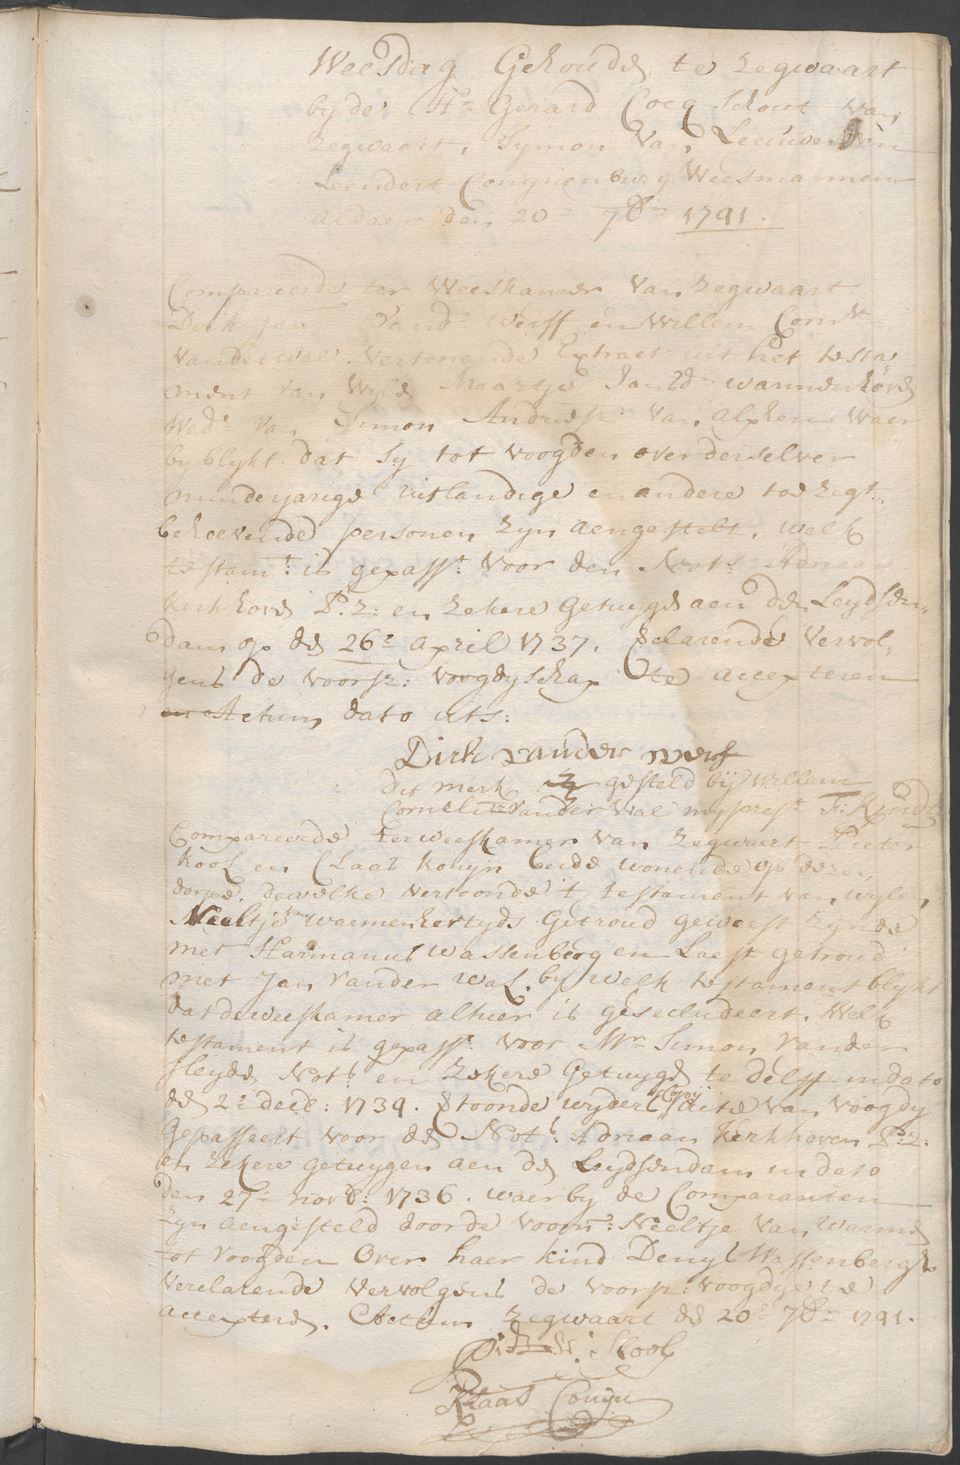 Weesdag Gehoudẽ te Zegwaart
by de Hr. Gerard Cocq Schout van
Zegwaart, Symon Van Leeuwen en
Leendert Couwenburg Weesmannen
aldaer den 20e 7br 1791.
Compareerde ter Weeskamer Van Zegwaart
Dirk Jan Vandr. Werff en Willem Cornls.
vander wal. Vertonende Extract uit het testa
ment van Wyle Maartje Jansd. warmenhove
Wede. Van Simon Andriesz. Van Alphen waer
by blykt dat Sy tot voogden over derselver
minderjarige uitlandige en andere toezigt
behoevende personen zyn aengestelt. welk
testamt. is gepasst. voor den Nots. Adriaan
kerkhove Pz. en zekere Getuyge aen den Leydsen-
dam op de 26e april 1737. verclarende vervol-
gens de voorsz: voogdyschap te accepteren
Actum dato uts:
Dirk vander werf
Dit merk gesteld bij Willem
Cornelisz vander Wal my prest.
Compareerde ter weeskamer van Zegwaert Pieter
kool en Claas konyn beide wonende op deze
dorpe, dewelke vertoonde 't testament van wyle
Neeltje van warmenhove tyds Getroud geweest zynde
met Harmanus Wassenberg en Laest getroud
met Jan vander wal. by welk testament blykt
dat de weeskamer alhier is gesecludeert. Welk
testament is gepasst. voor Mr. Simon vander
sleyde Nots. en zekere Getuyge te delff in dato
de 2e decb: 1739. Toonde wyders Copij acte van voogdy
Gepasseert voor de Nots. Adriaan kerkhoven Pz:
en zekere getuygen aen de Leydsendam in dato
den 27e novb: 1736. waerby de Comparanten
zyn aengesteld door de voorn: Neeltje van warme
tot voogden over haer kind Denys Wassenbergh
verclarende vervolgens de voorsz: voogdye te
acceptere. Actum Zegwaart de 20e 7br 1791.
Pieter Kool
Klaas Conijn